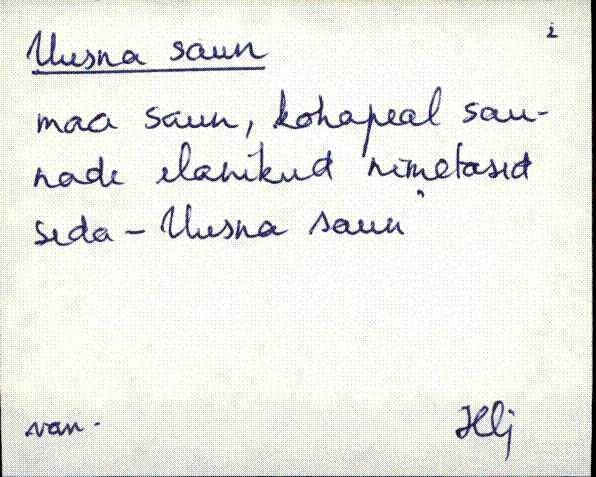 2
Uusna saun
maa saun, kohapeal sau-
nade elanikud nimetasid
seda – Uusna saun"
van.
Hlj